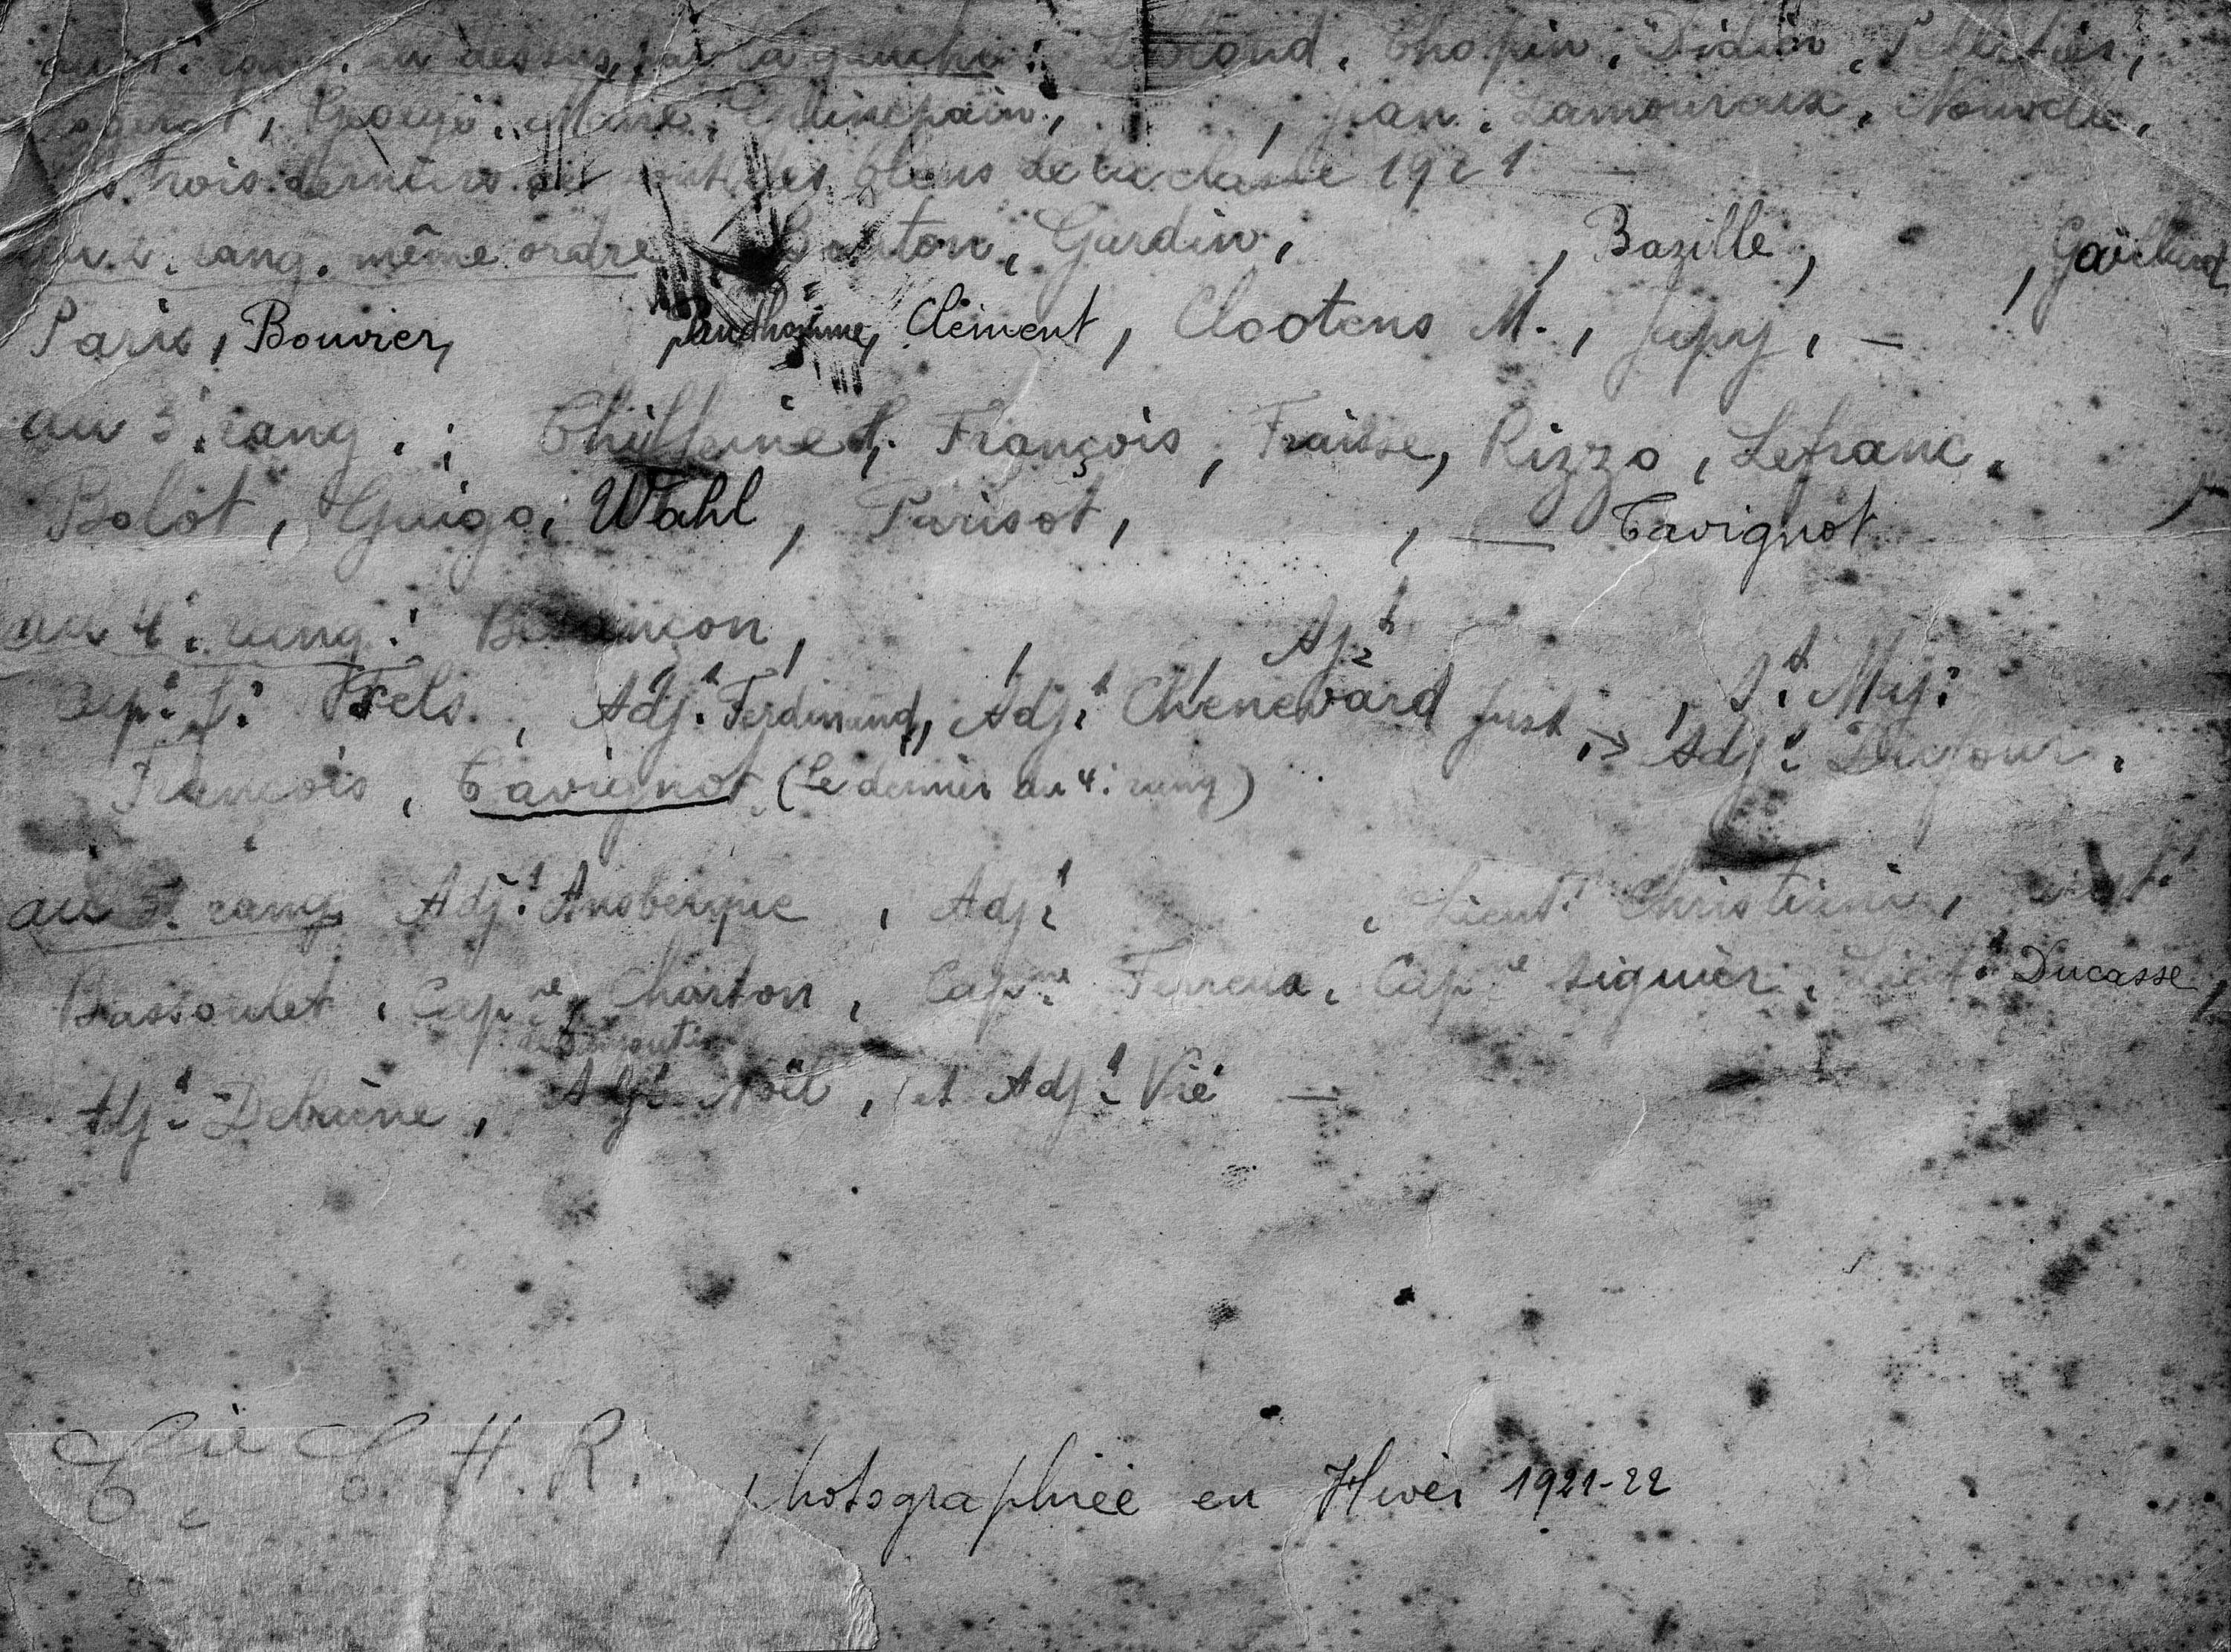 au 1. rang. au dessus, par la gauche : Leblond, Chopin, Didier, Pelletier,
George, Marie, , Jean, Lamouroux, Nouvelle,
trois derniers sont des bleus de la classe 1921 —
au 2. rang. même ordre Burton, Gardin, , Bazille, , Gaillard
Paris, Bouvier, Prudhomme, Clément, Clootens M., Jupy, —
au 3. rang. : François, Fraisse, Rizzo, Lefranc,
Bolot, Guigo, Wahl, Parisot, , — Tavignot
au 4. rang : Besançon, , , , Adjt , St Maj.
Fels, Adjt Ferdinand, Adjt Chenevard Just, → Adjt Dufour,
François, Tavignot (Le dernier au 4. rang)
au 5. rang Adjt Ansbergue, Adjt , Lieut. Christiani,
Bassoulet, Capne Charton, Capne Ferreux, Capne Siguier, Lieut. Ducasse,
Adjt Debriène, Adjt Noël, et Adjt Vié —
Cie C. H. R. photographiée en Hiver 1921-22